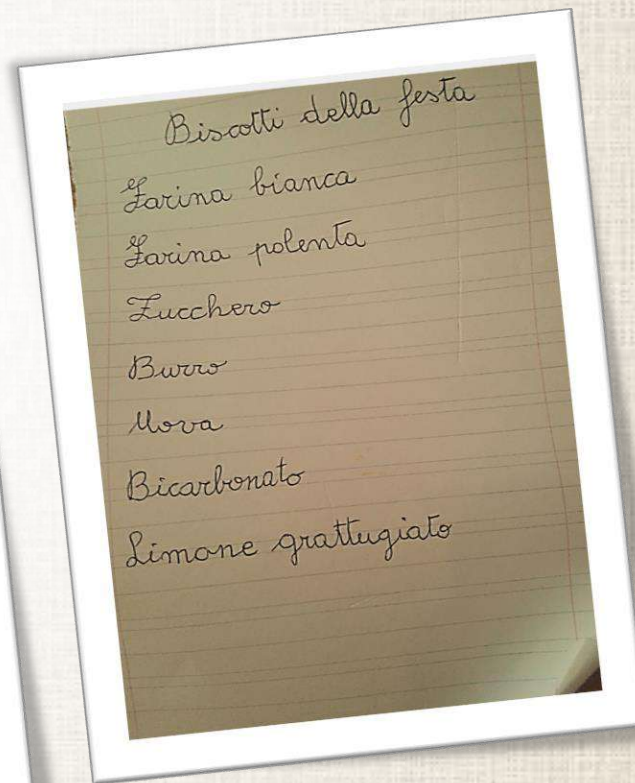 Biscotti della festa
Farina bianca
Farina polenta
Zucchero
Burro
Uova
Bicarbonato
Limone grattugiato